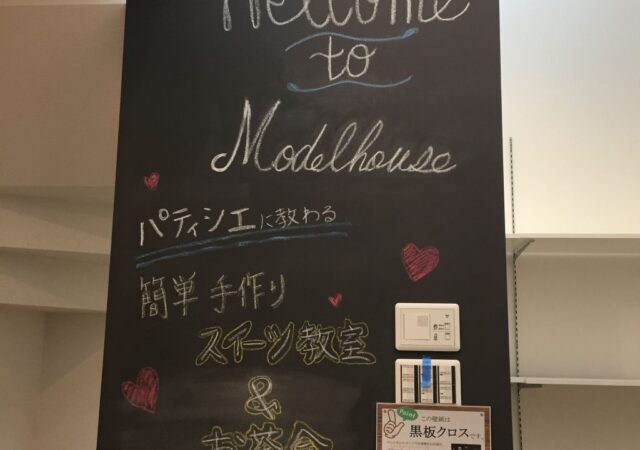 Welcome
to
Modelhouse
パティシエに教わる
簡単 手作り
スイーツ教室
&
お茶会
Point
この壁紙は
黒板クロスです。